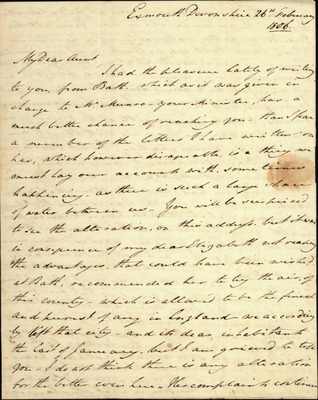 Exmouth Devonshire 26th February
1806.
My Dear Aunt
I had the pleasure lately of writing
to you, from Bath, which as it was given in
charge to Mr Munroe your Minister, has a
much better chance of reaching you, than I fear
a number of the letters I have written you
has, which however disagreeable, is a thing we
must lay our accounts with, some times
happening, as there is such a large share
of water between us. You will be surprised
to see the alteration, on this address, but it was
in consequence of my dear Elizabeth not reaping
the advantages, that could have been wished
at Bath, recommended her to try the air, of
this county - which is allowed to be the finest
and purest of any in England - we according
ly left that city - and its dear inhabitants
the last of January, but I am grieved to tell
you - I do not think there is any alteration
for the better even here - Her complaints continue